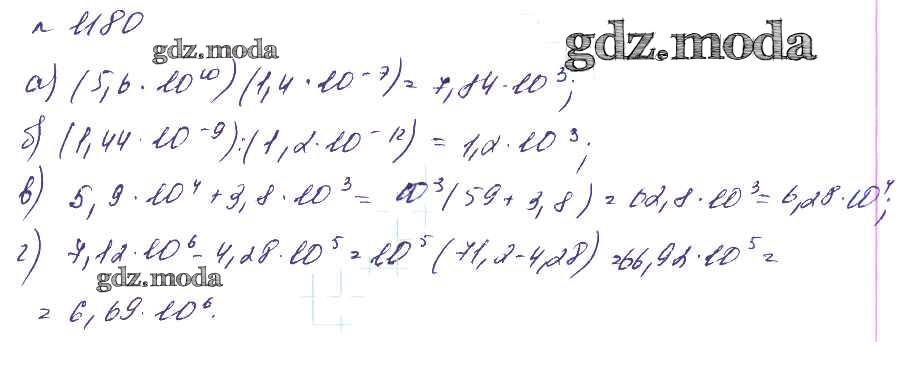 № 1180
gdz.moda
gdz.moda
а) (5,6 · 10¹⁰)(1,4 · 10⁻⁷) = 7,84 · 10³;
б) (1,44 · 10⁻⁹):(1,2 · 10⁻¹²) = 1,2 · 10³;
в) 5,9 · 10⁴ + 3,8 · 10³ = 10³(59 + 3,8) = 62,8 · 10³ = 6,28 · 10⁴;
г) 7,12 · 10⁶ - 4,28 · 10⁵ = 10⁵(71,2 - 4,28) = 66,92 · 10⁵ =
gdz.moda
= 6,69 · 10⁶.